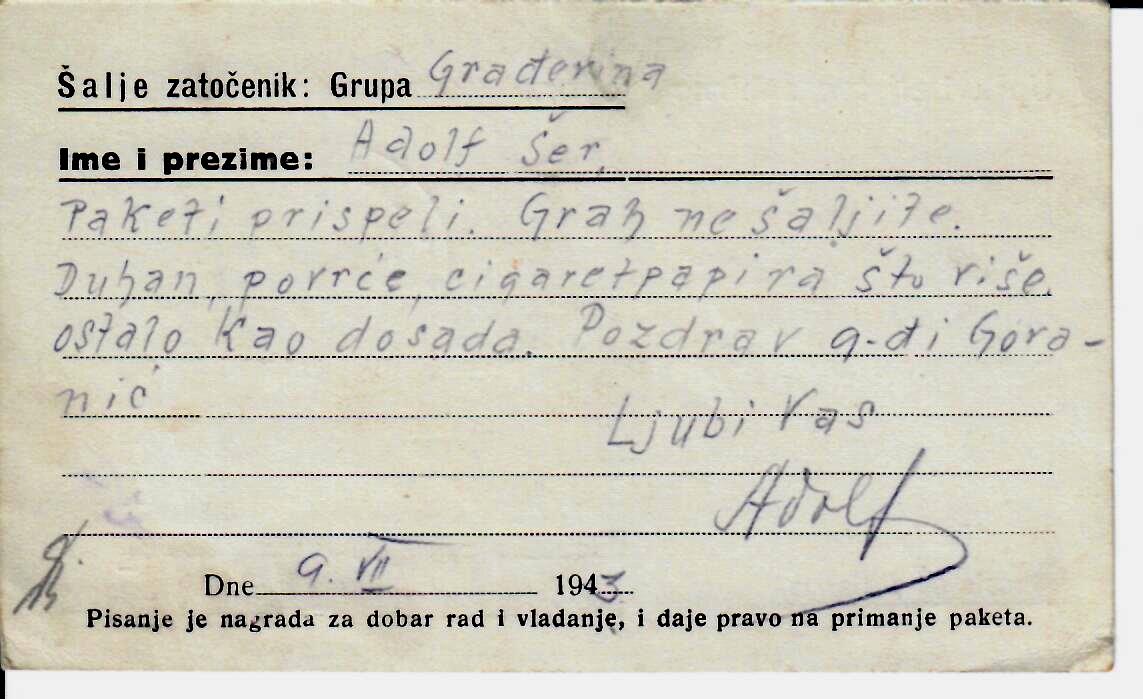 Šalje zatočenik: Grupa Građevina
Ime i prezime: Adolf Šer.
Paketi prispeli. Grah ne šaljite.
Duhan, povrće, cigaretpapira što više.
ostalo kao dosada. Pozdrav g-đi Gora-
nić
Ljubi Vas
Adolf
Dne 9. VII 1943.
Pisanje je nagrada za dobar rad i vladanje, i daje pravo na primanje paketa.